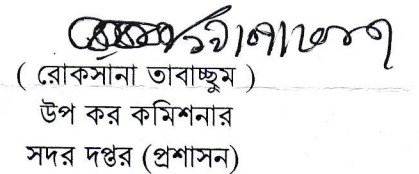 ( রোকসানা তাবাচ্ছুম )
উপ কর কমিশনার
সদর দপ্তর (প্রশাসন)